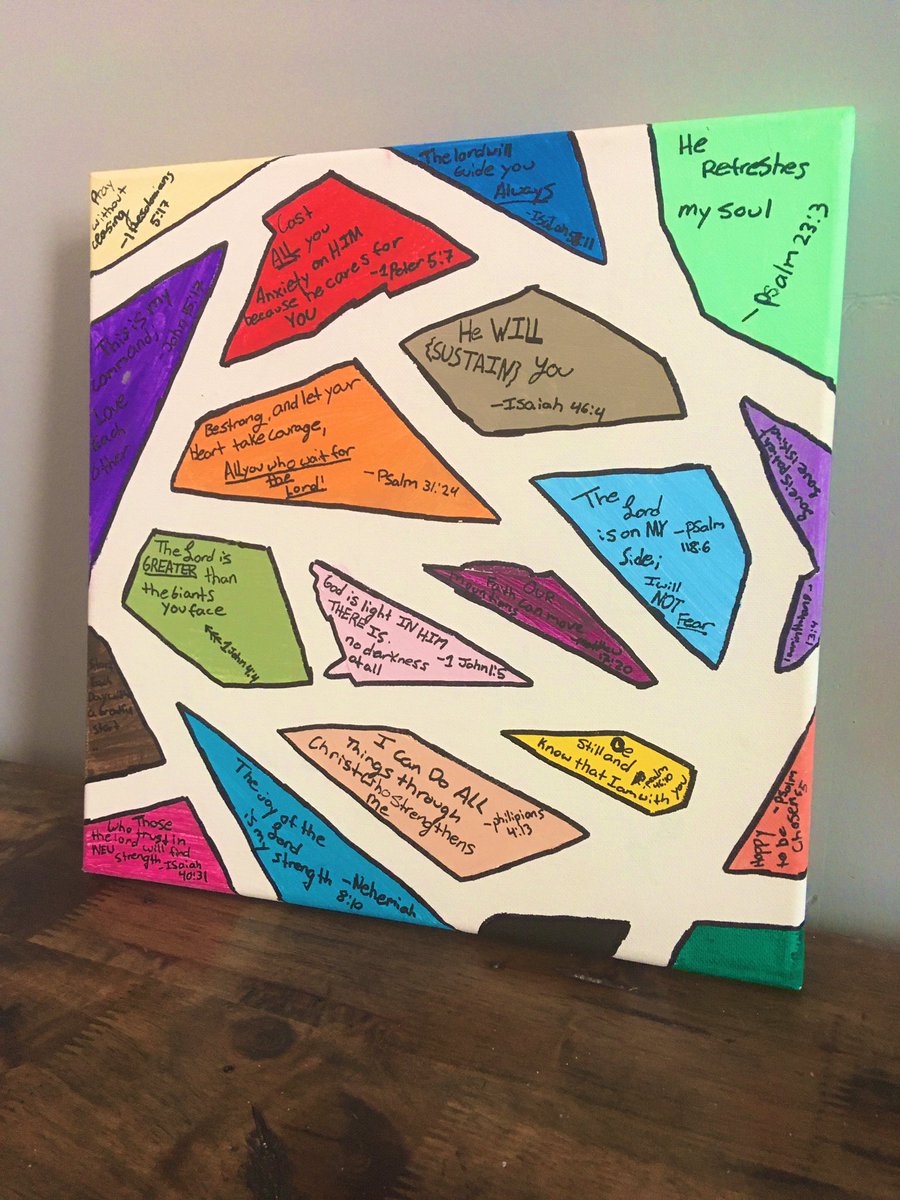 Pray
without
ceasing
5:17
The lord will
Guide you
Always
He
Refreshes
my soul
-Psalm 23:3
Cast
All you
Anxiety on HIM
because he cares for
YOU
-1Peter 5:7
This is my
command,
Love
Each
other
-John 15:17
He WILL
{SUSTAIN} You
-Isaiah 46:4
Be strong, and let your
Heart take courage,
All you who wait for
the
Lord!
-Psalm 31:24
Love is patient,
Love is kind
13:4
The Lord
is on MY
Side;
I will
NOT
Fear
-Psalm
118:6
The Lord is
GREATER than
the Giants
You face
1John 4:4
God is light IN HIM
THERE IS.
no darkness
at all
-1 John 1:5
OUR
Faith can move
17:20
Day with
a Grateful
Start
I Can Do All
Things through
Christ who Strengthens
me
-philipians
4:13
Be
Still and
Know that I am with you
psalm
46:10
Happy
to be
Chosen
-Psalm
Those
who trust in
the lord will find
NEW
strength -Isaiah
40:31
The joy of the
Lord
is
strength -Nehemiah
8:10